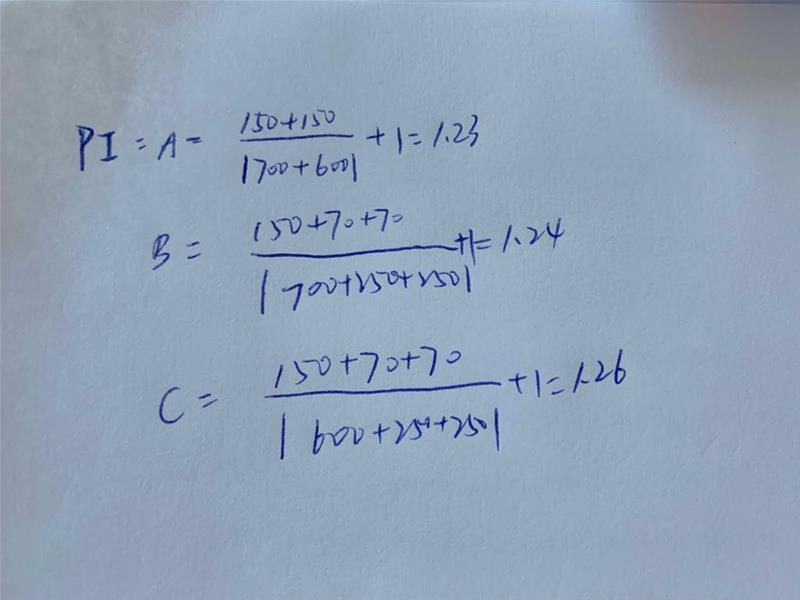 PI = A = (150+150)/|700+600| + 1 = 1.23
B = (150+70+70)/|700+250+250| + 1 = 1.24
C = (150+70+70)/|600+250+250| + 1 = 1.26